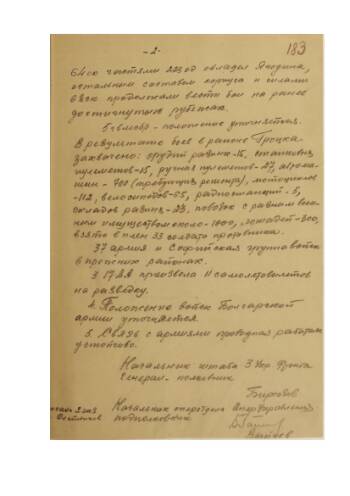 - 2 -
183
64ск частями 223сд овладел Ягодина,
остальным составом корпуса и силами
68ск продолжали вести бои на ранее
достигнутых рубежах.
5 гв мсбр - положение уточняется.
В результате боев в районе Гроцка
захвачено: орудий разных - 16, станковых
пулеметов - 15, ручных пулеметов - 27, автома-
шин - 700 (требующих ремонта), мотоциклов
- 112, велосипедов - 55, радиостанций - 5,
складов разных - 23, повозок с разным воен-
ным имуществом около - 1000, лошадей - 300,
взято в плен 35 солдат противника.
37 армия и Софийская группа войск
в прежних районах.
3. 17ВА произвела 11 самолетовылетов
на разведку.
4. Положение войск Болгарской
армии уточняется.
5. Связь с армиями проводная работает
устойчиво.
Начальник штаба 3 Укр. фронта
Генерал-полковник
Бирюзов
Начальник оперотдела Опер. Управления
подполковник